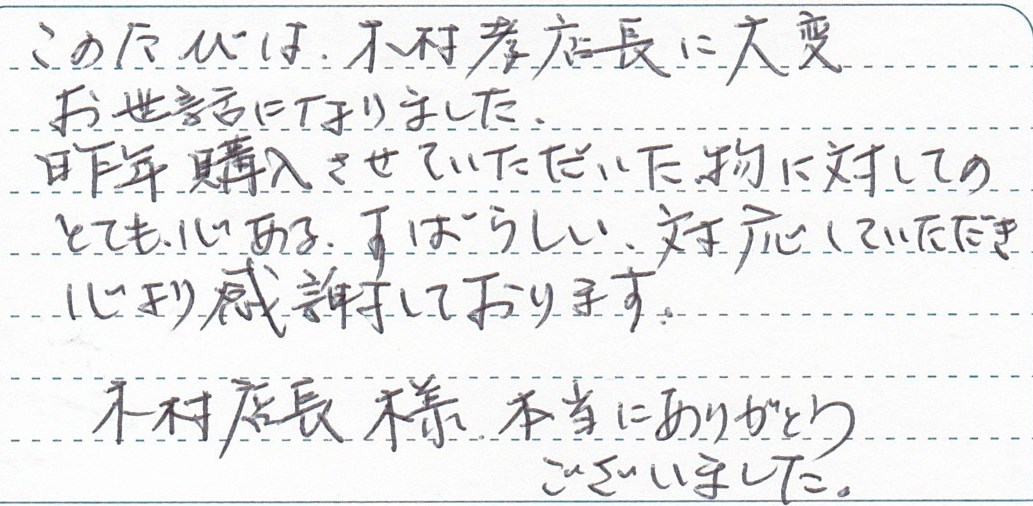 このたびは、木村孝店長に大変
お世話になりました、
昨年購入させていただいた物に対しての
とても心ある、すばらしい、対応していただき
心より感謝しております。
木村店長様、本当にありがとう
ございました。